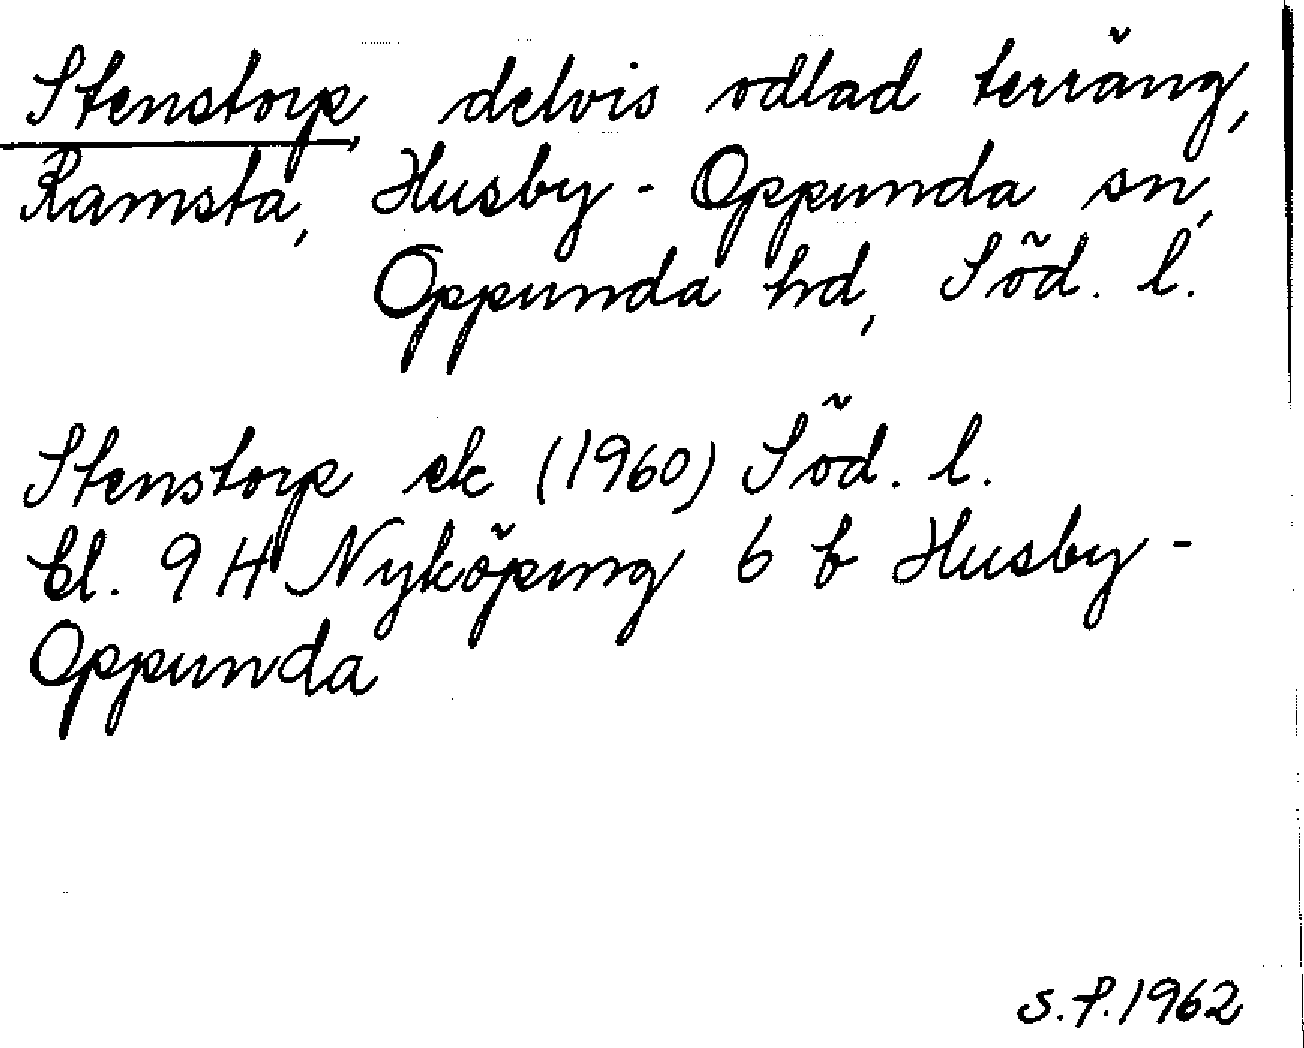 Stenstorp, delvis odlad terräng,
Ramsta, Husby-Oppunda sn,
Oppunda hd, Söd. l.
Stenstorp ek (1960) Söd. l.
bl. 9 H Nyköping 6 b Husby-
Oppunda
S.P. 1962